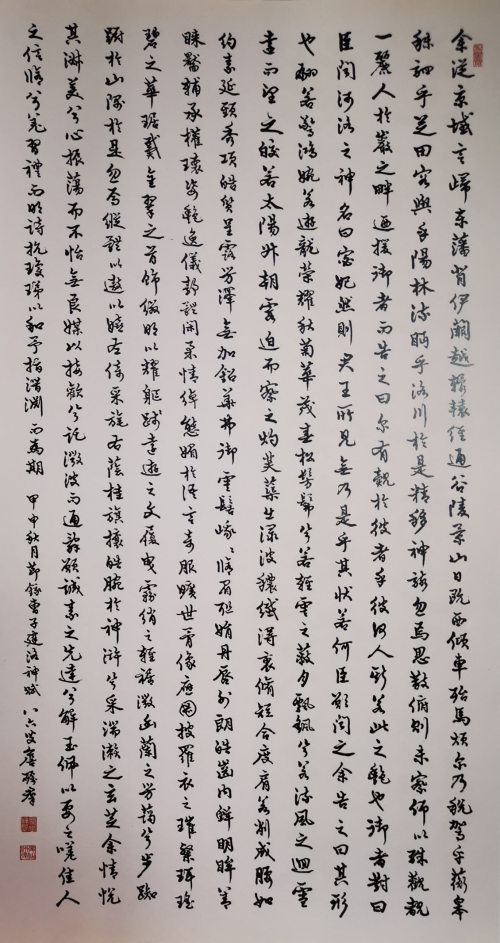 余從京城言歸東藩背伊闕越轘轅經通谷陵景山日既西傾車殆馬煩尔乃稅駕乎蘅皋
秣駟乎芝田容與乎陽林流眄乎洛川於是精移神駭忽焉思散俯則未察仰以殊觀覩
一麗人於巖之畔迺援御者而告之曰尔有覿於彼者乎彼何人斯若此之艷也御者對曰
臣聞河洛之神名曰宓妃然則君王所見無乃是乎其狀若何臣願聞之余告之曰其形
也翩若驚鴻婉若遊龍榮耀秋菊華茂春松髣髴兮若輕雲之蔽月飄飖兮若流風之迴雪
遠而望之皎若太陽升朝霞迫而察之灼若芙蕖出淥波穠纖得衷脩短合度肩若削成腰如
約素延頸秀項皓質呈露芳澤無加鉛華弗御雲髻峨〻脩眉聯娟丹唇外朗皓齒內鮮明眸善
睞靨輔承權瓌姿艷逸儀靜體閑柔情綽態媚於語言奇服曠世骨像應圖披羅衣之璀粲珥瑤
碧之華琚戴金翠之首飾綴明以耀軀踐遠遊之文履曳霧綃之輕裾微幽蘭之芳藹兮步踟
躕於山隅於是忽焉縱體以遨以嬉左倚采旄右蔭桂旗攘皓腕於神滸兮采湍瀨之玄芝余情悅
其淑美兮心振蕩而不怡無良媒以接歡兮託微波而通辭願誠素之先達兮解玉佩以要之嗟佳人
之信脩兮羌習禮而明詩抗瓊珶以和予指潛淵而為期 甲申秋月節錄曹子建洛神賦 八六叟